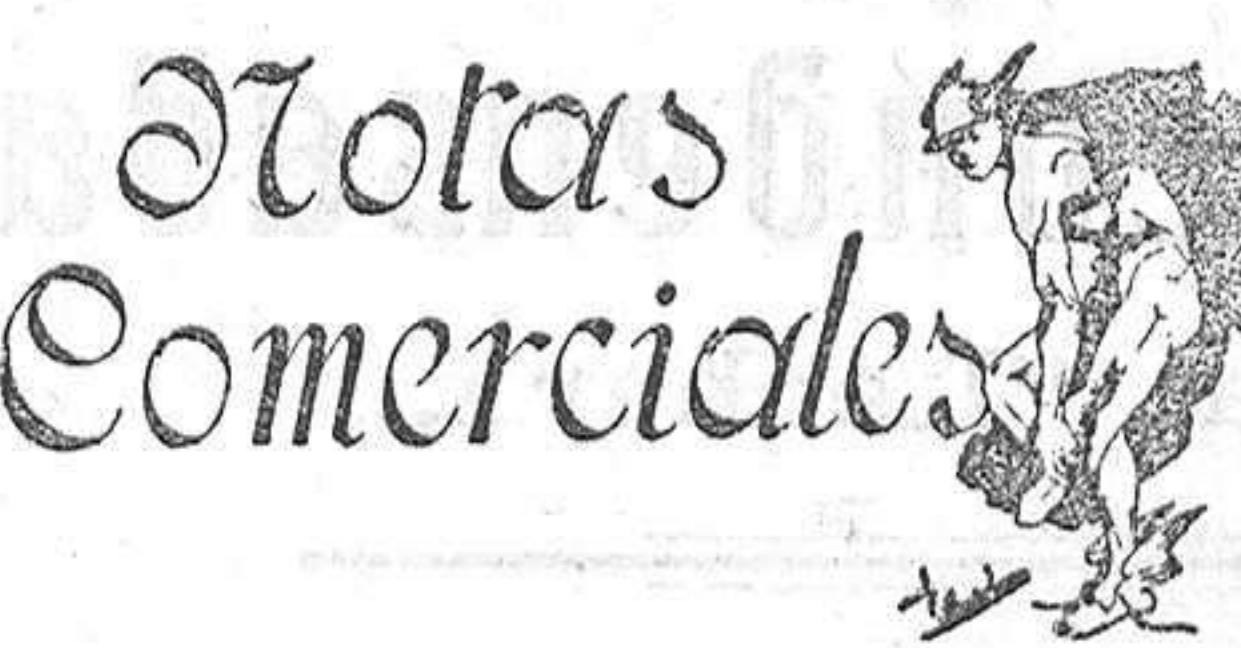 Notas
Comerciales